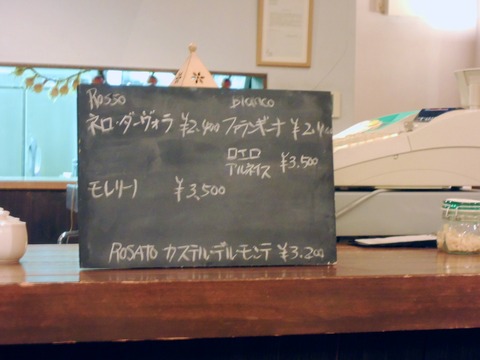 Rosso bianco
ネロ・ダーヴォラ ¥2,400 ファランギーナ ¥2,400
ロエロ
アルネイス ¥3,500
モレリーノ ¥3,500
ROSATO カステル・デル・モンテ ¥3,200